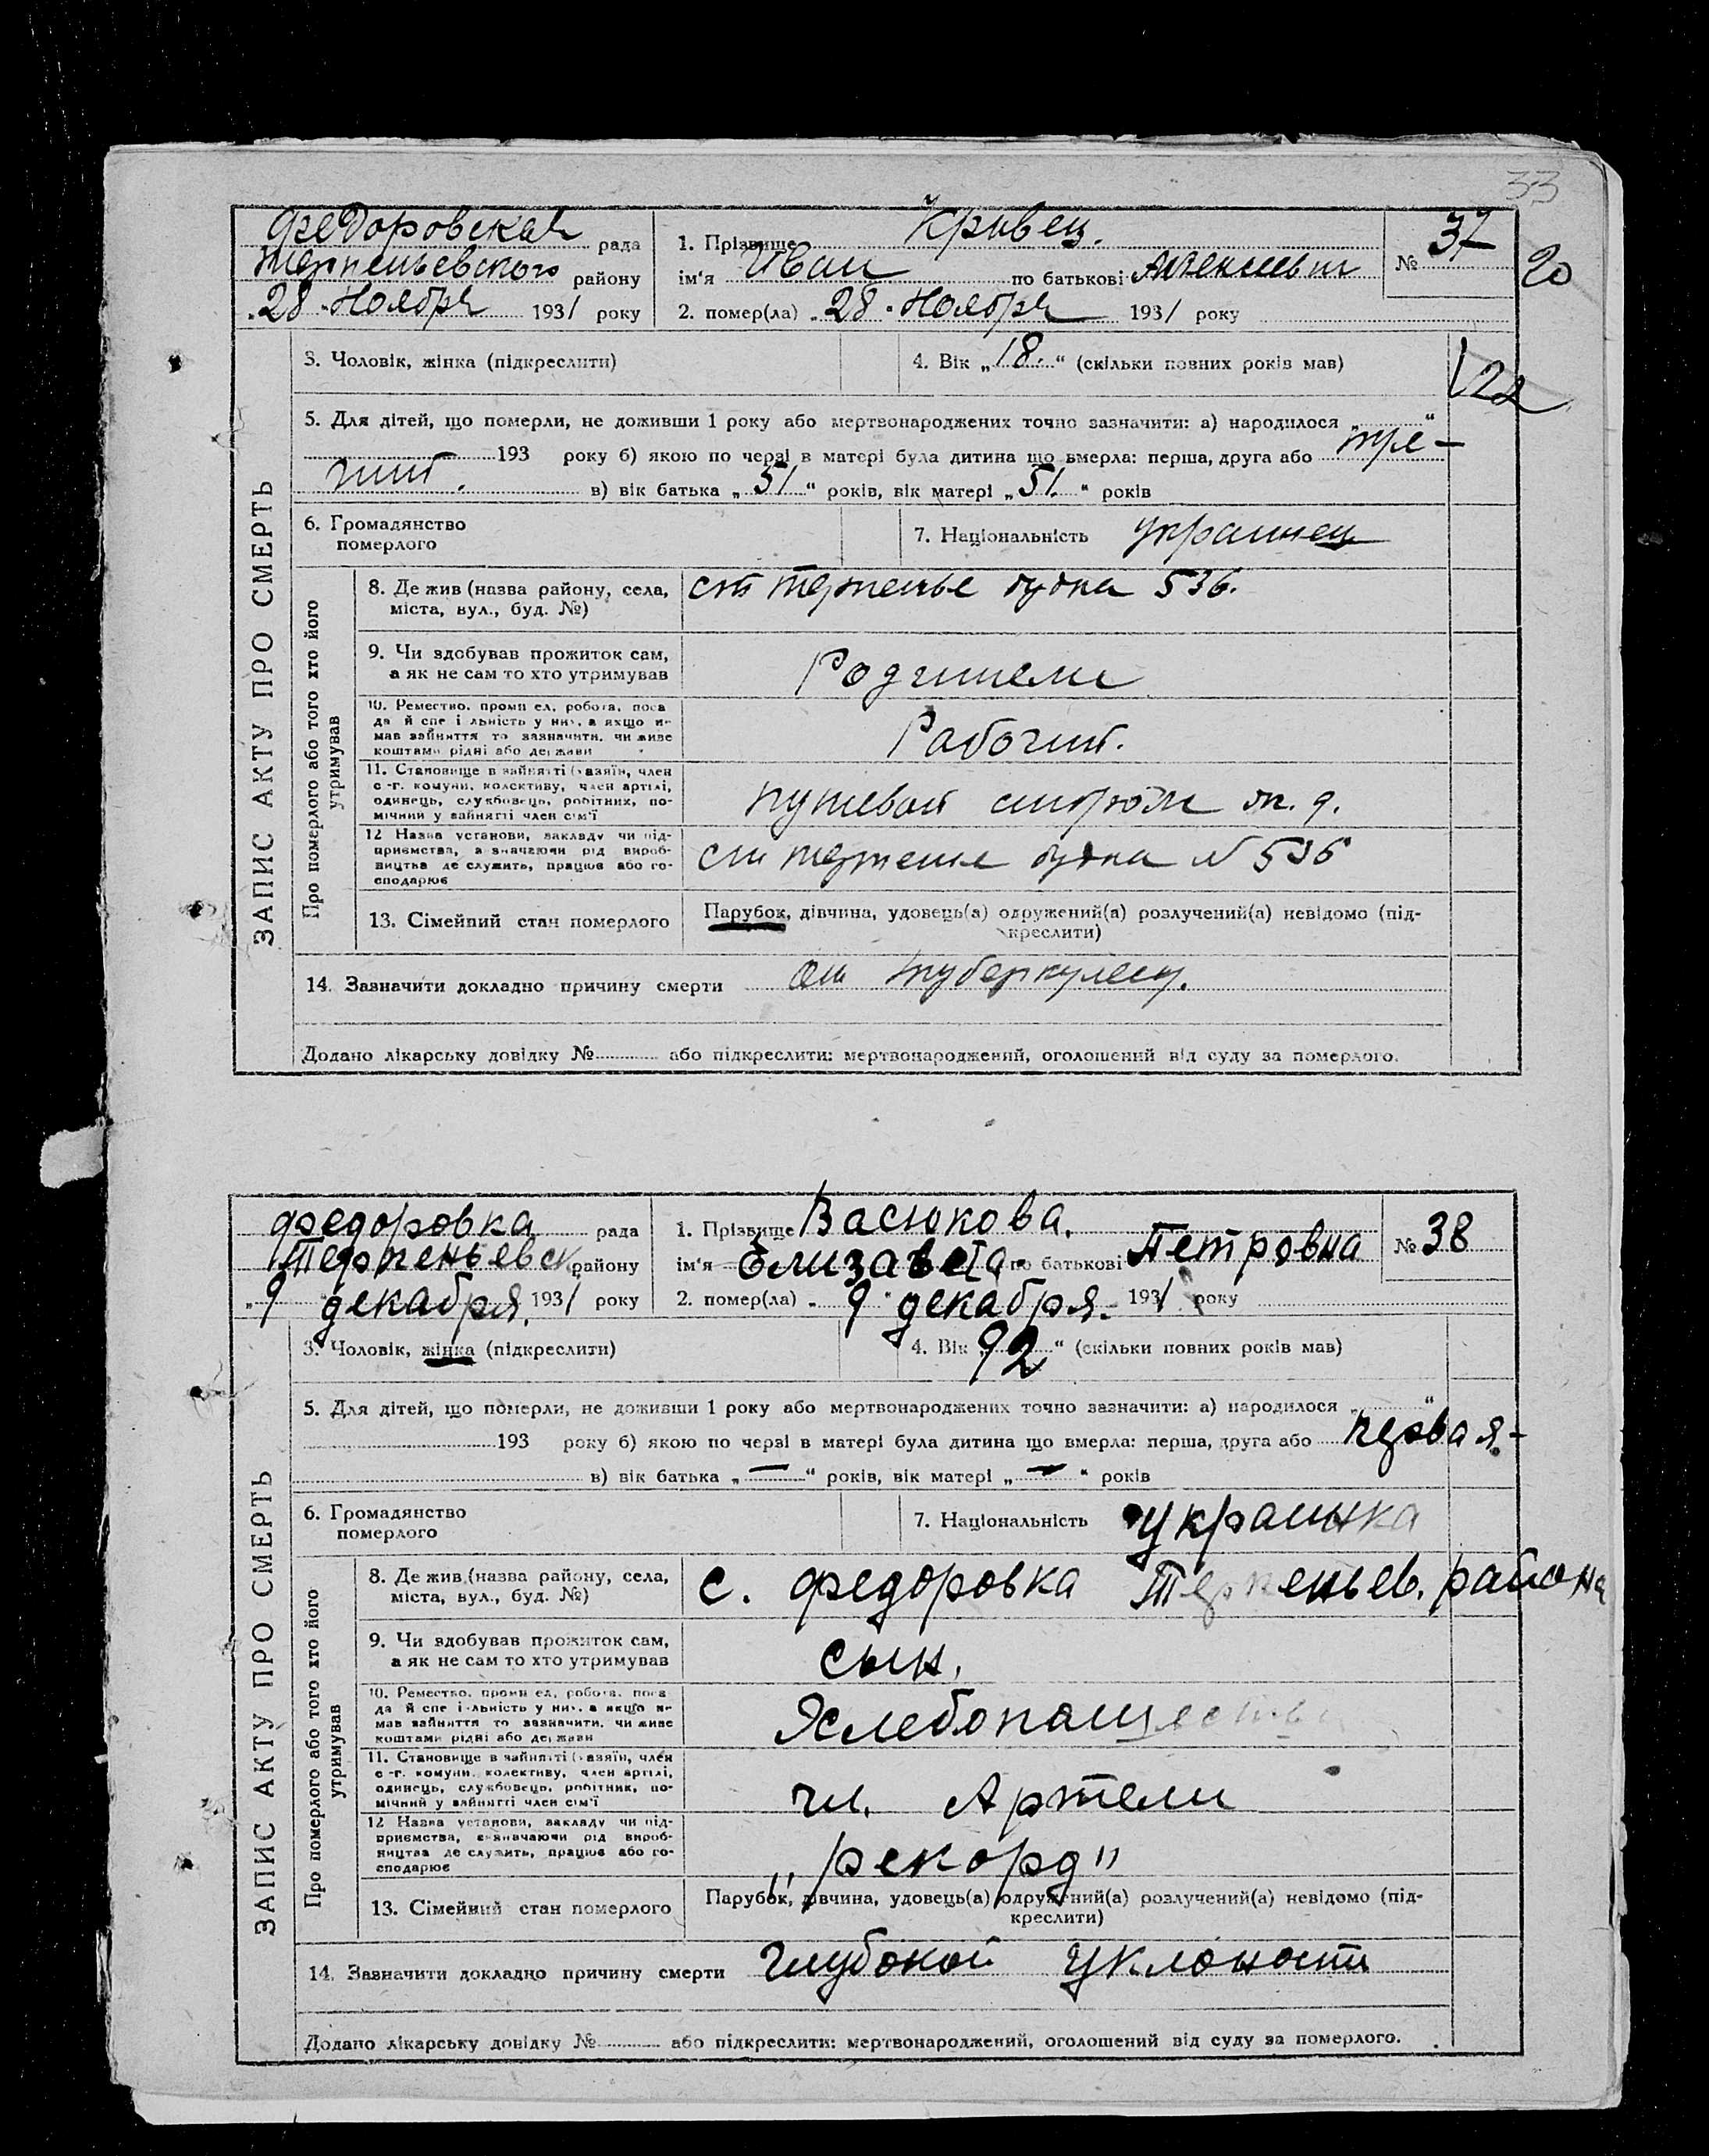 33
Федоровская рада
Терпеньевского району
„28" Ноября 1931 року
1. Прізвище Кривец.
ім'я Иван по батькові Алексеевич
2. помер(ла) „28" Ноября 1931 року
№ 37
20
ЗАПИС АКТУ ПРО СМЕРТЬ
3. Чоловік, жінка (підкреслити)
4. Вік „18." (скільки повних років мав)
122
5. Для дітей, що померли, не доживши 1 року або мертвонароджених точно зазначити: а) народилося „ "
193 року б) якою по черзі в матері була дитина що вмерла: перша, друга або тре-
тит. в) вік батька „51" років, вік матері „51." років
6. Громадянство
померлого
7. Національність украинец
Про померлого або того хто його
утримував
8. Де жив (назва району, села,
міста, вул., буд. №)
ст Терпенье будка 536.
9. Чи здобував прожиток сам,
а як не сам то хто утримував
Родители
10. Ремество, промисел, робота, поса
да й спеціяльність у них, а якщо н-
мав зайняття то зазначити, чи живе
коштами рідні або держави
Рабочий.
11. Становище в зайнятті (хазяїн, член
с.-г. комуни, колективу, член артілі,
одинець, службовець, робітник, по-
мічний у зайнятті член сім'ї
путевой сторож ж. д.
12 Назва установи, закладу чи під-
приємства, зазначаючи рід вироб-
ництва де служить, працює або го-
сподарює
ст Терпенье будка N 536
13. Сімейний стан померлого
Парубок, дівчина, удовець(а) одружений(а) розлучений(а) невідомо (під-
креслити)
14. Зазначити докладно причину смерти от туберкулеза.
Додано лікарську довідку № або підкреслити: мертвонароджений, оголошений від суду за померлого.
Федоровка рада
Терпеньевск. району
„9 декабря. 1931 року
1. Прізвище Васюкова.
ім'я Елизавета по батькові Петровна
2. помер(ла) „9" декабря. 1931 року
№ 38
ЗАПИС АКТУ ПРО СМЕРТЬ
3. Чоловік, жінка (підкреслити)
4. Вік „92" (скільки повних років мав)
5. Для дітей, що померли, не доживши 1 року або мертвонароджених точно зазначити: а) народилося „ "
193 року б) якою по черзі в матері була дитина що вмерла: перша, друга або первая.-
в) вік батька „—" років, вік матері „—" років
6. Громадянство
померлого
7. Національність украинка
Про померлого або того хто його
утримував
8. Де жив (назва району, села,
міста, вул., буд. №)
с. Федоровка Терпеньев. района
9. Чи здобував прожиток сам,
а як не сам то хто утримував
сын.
10. Ремество, промисел, робота, поса
да й спеціяльність у них, а якщо н-
мав зайняття то зазначити, чи живе
коштами рідні або держави
Хлебопашество
11. Становище в зайнятті (хазяїн, член
с.-г. комуни, колективу, член артілі,
одинець, службовець, робітник, по-
мічний у зайнятті член сім'ї
чл. Артели
12 Назва установи, закладу чи під-
приємства, зазначаючи рід вироб-
ництва де служить, працює або го-
сподарює
„рекорд"
13. Сімейний стан померлого
Парубок, дівчина, удовець(а) одружений(а) розлучений(а) невідомо (під-
креслити)
14. Зазначити докладно причину смерти глубокой уклоности
Додано лікарську довідку № або підкреслити: мертвонароджений, оголошений від суду за померлого.